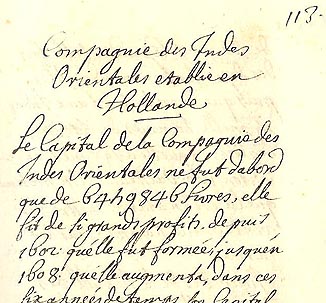 113.
Compagnie des Indes
Orientales etablie en
Hollande
Le Capital de la Compagnie des
Indes Orientales ne fut dabord
que de 6459846 livres, elle
fit de si grands profits de puis
1602. quelle fut formée, jusquen
1608. quelle augmenta, dans ces
six années de temps, son Capital